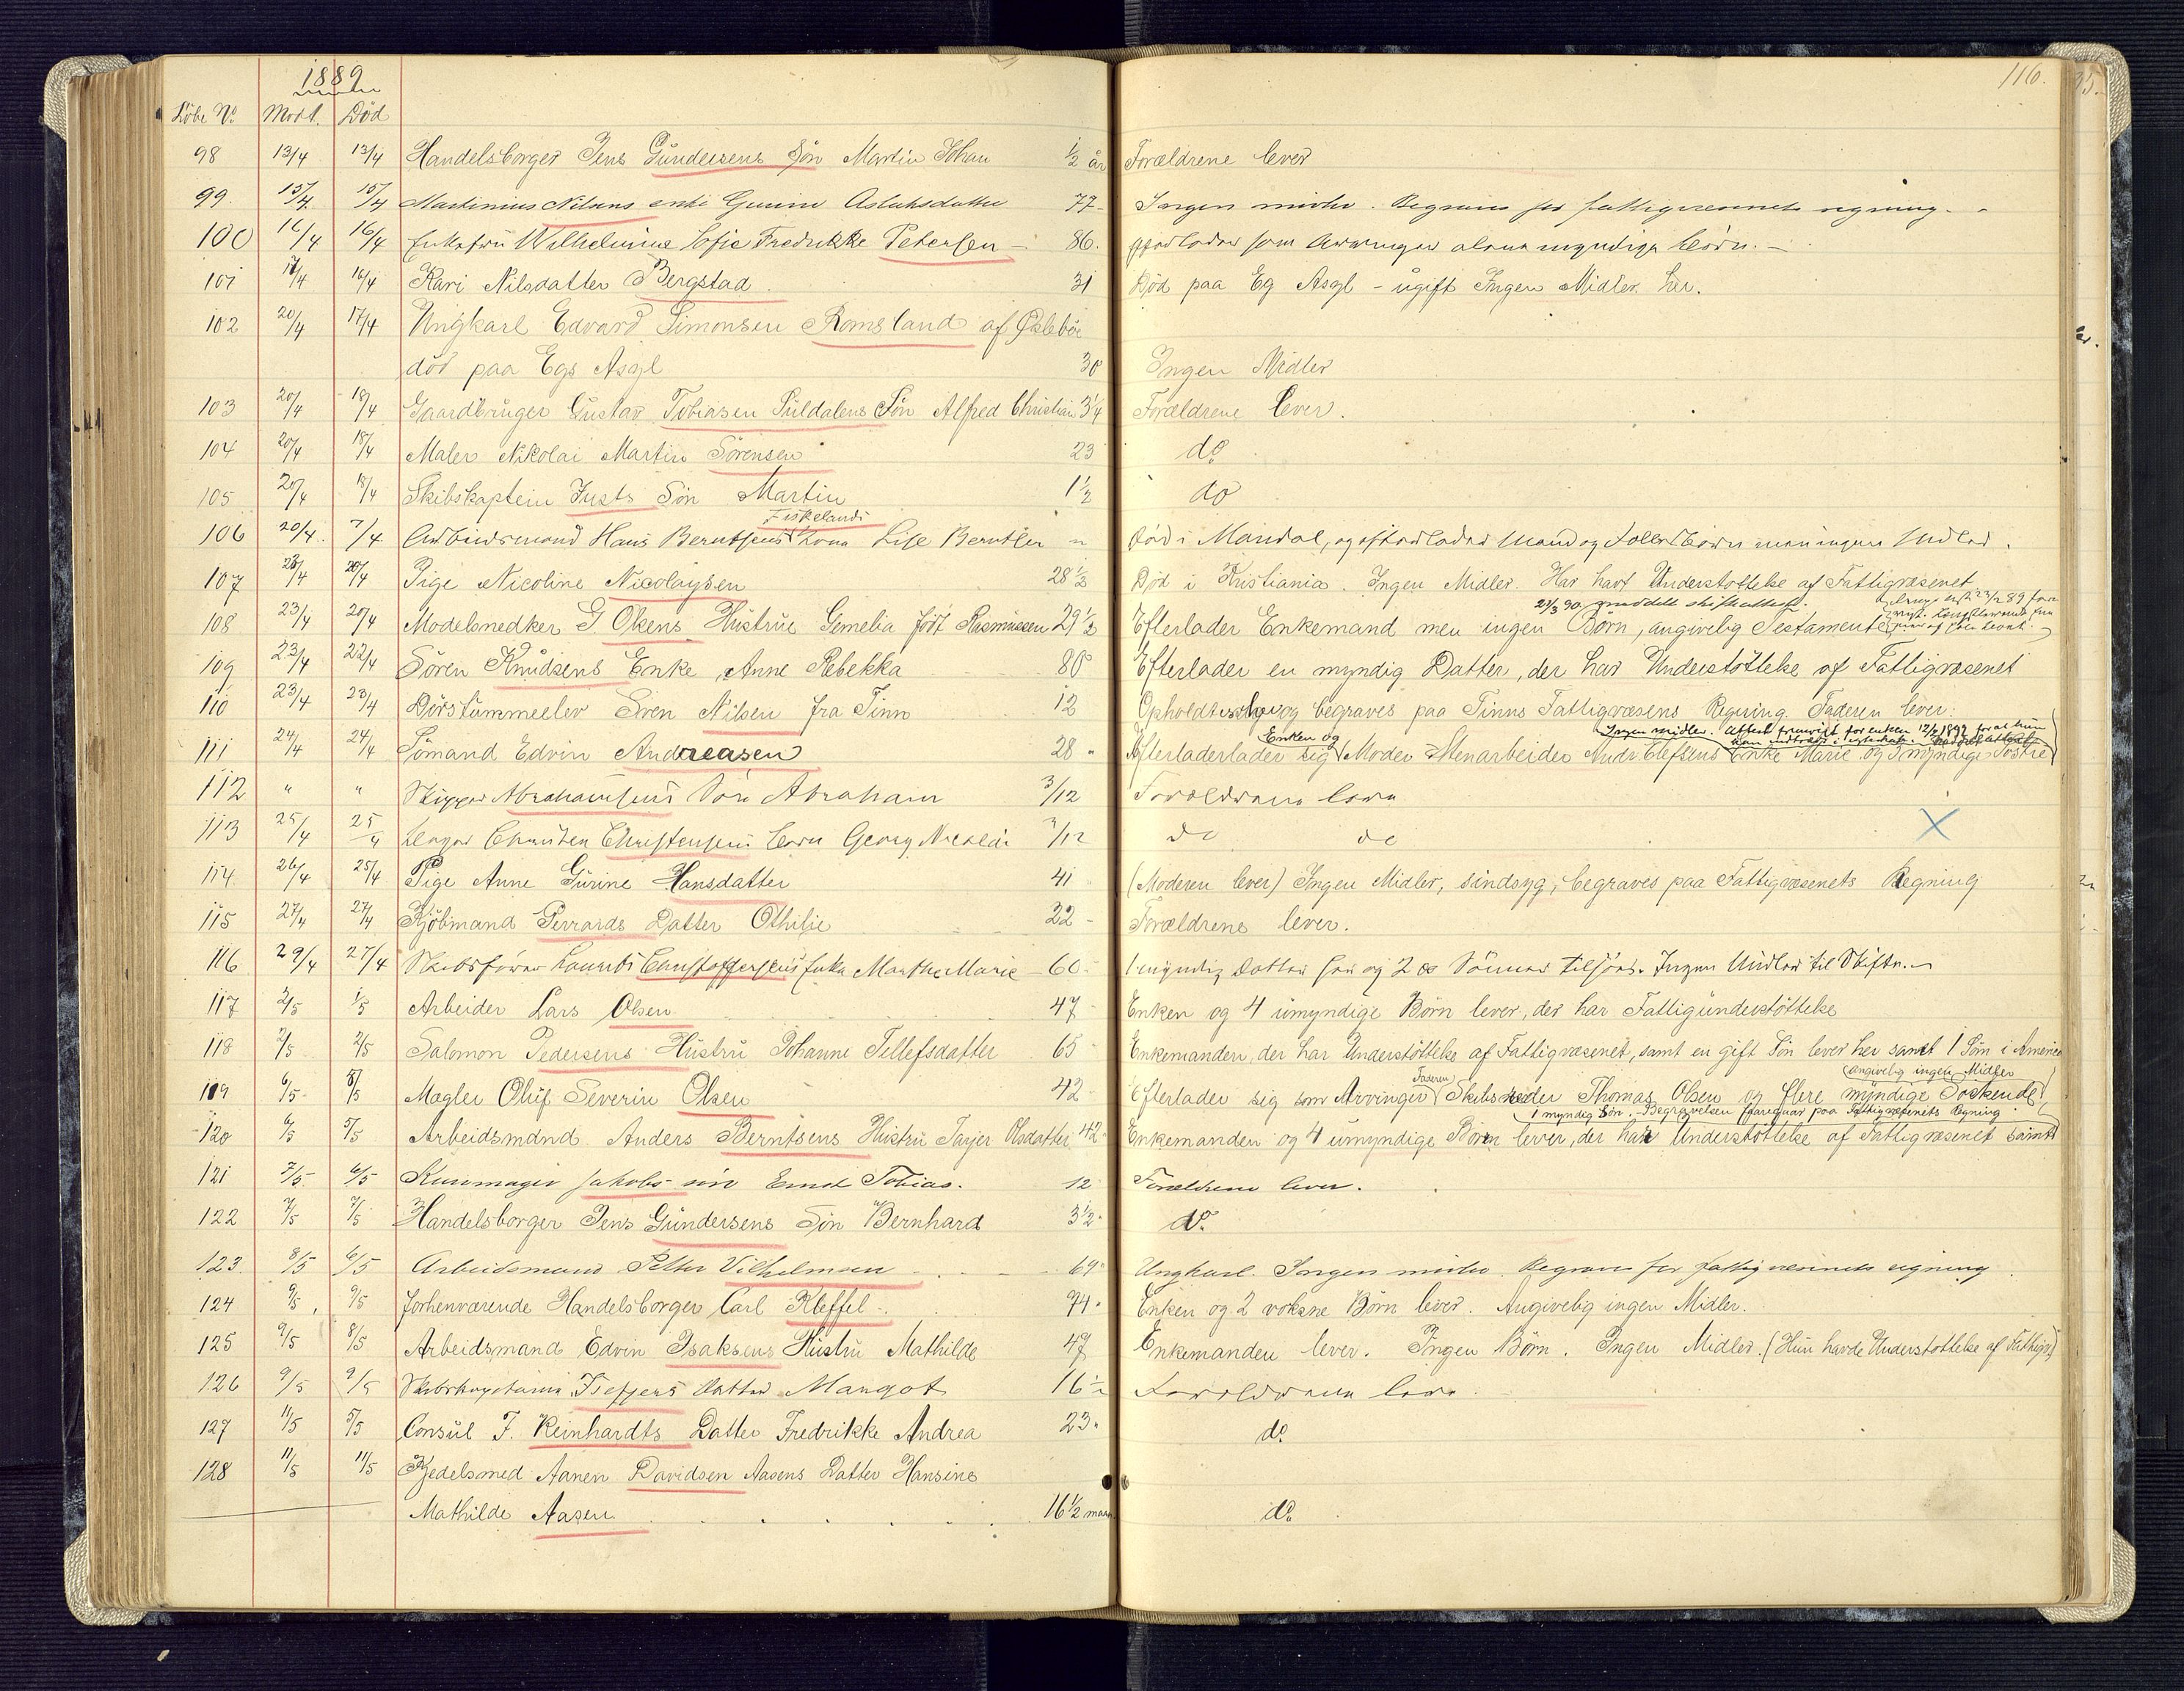 116.
1889
Löbe No. Modt. Död
98 13/4 13/4 Handelsborger Jens Gundersens Søn Martin Johan 1/2 år Forældrene lever
99 15/4 15/4 Martinius Nilsens enke Gurine Aslaksdatter 77 Ingen midler. Begraves for fattigvæsenets regning.
100 16/4 16/4 Enkefru Wilhelmine Sofie Fredrikke Petersen 86. efterlader som Arvinger alene myndige børn.
101 17/4 16/4 Kari Nilsdatter Bergstad 31 Död paa Eg Asyl - ugift Ingen Midler her.
102 20/4 17/4 Ungkarl Edvard Simonsen Romsland af Øslebø
död paa Egs Asyl 30 Ingen Midler
103 20/4 18/4 Gaardbruger Gustav Tobiasen Suldalens Søn Alfred Christian 3 1/4 Forældrene lever.
104 20/4 18/4 Maler Nikolai Martin Sörensen 23 do
105 20/4 18/4 Skibskaptein Justs Søn Martin 1 1/2 do
Fiskelands
106 20/4 7/4 Arbeidsmand Hans Berntsens Kone Lise Berntsen " död i Mandal, og efterlader Mand og Børn men ingen Midler.
107 23/4 20/4 Pige Nicoline Nicolaysen 28 1/2 Død i Kristiania. Ingen Midler. Har havt Understøttelse af Fattigvæsenet
21/3 90 meddelt skifteattest.
108 23/4 20/4 Modelsnedker G. Olsens Hustru Gemelia født Rasmussen 29 1/2 Efterlader Enkemand men ingen Børn, angivelig Testamente
109 23/4 22/4 Sören Knudsens Enke, Anne Rebekka 80 Efterlader en myndig Datter, der har Understøttelse af Fattigvæsenet
110 23/4 23/4 Døvstummeelev Sven Nilsen fra Tinn 12 Opholdt sig her og begraves paa Tinns Fattigvæsens Regning. Faderen lever.
Enken og Ingen midler. Attest for enken 12/2 1892 for at hun
111 24/4 24/4 Sömand Edvin Andreasen 28 " Efterladerlader sig Moder Stenarbeider Andr. Elefsens Enke Marie og 3 myndige Søstre
112 " " Skipper Abrahamsens Søn Abraham 3/12 Forældrene leve
113 25/4 25/4 Christen Christensens barn Georg Nicolai 3/12 do do
114 26/4 25/4 Pige Anne Gurine Hansdatter 41 (Moderen lever) Ingen Midler, sindsyg, begraves paa Fattigvæsenets Regning
115 27/4 27/4 Kjøbmand Gerrards Datter Othilie 22 - Forældrene lever.
116 29/4 27/4 Skibsfører Laurits Christoffersens Enke Marthe Marie 60 1 myndig Datter her og 2 do Sønner tilsjøs. Ingen Midler til Skifte.
117 2/5 1/5 Arbeider Lars Olsen 47 Enken og 4 umyndige Børn lever, der har Fattigunderstøttelse
118 2/5 2/5 Salomon Pedersens Hustru Johanne Tellefsdatter 65 Enkemanden, der har Understøttelse af Fattigvæsenet, samt en gift Søn lever her samt 1 Søn i America
Faderen angivelig ingen Midler
119 6/5 5/5 Mægler Oluf Severin Olsen 42 Efterlader sig som Arvinger Skibsreder Thomas Olsen og flere myndige Söskende,
1 myndig Søn. - Begravelsen foregaar paa Fattigvæsenets Regning.
120 6/5 5/5 Arbeidsmand Anders Berntsens Hustru Tarjer Olsdatter 42 Enkemanden og 4 umyndige Børn lever, der har Understøttelse af Fattigvæsenet samt
121 7/5 6/5 Jakobs søn Ernst Tobias. 12 Forældrene lever.
122 7/5 7/5 Handelsborger Jens Gundersens Søn Bernhard 3 1/2 do.
123 8/5 6/5 Arbeidsmand Petter Vilhelmsen 69 Ungkarl. Ingen midler. Begraves for fattigvæsenets regning.
124 9/5 9/5 forhenværende Handelsborger Carl Kleffel 74 Enken og 2 voksne Børn lever. Angivelig ingen Midler.
125 9/5 8/5 Arbeidsmand Edvin Isaksens Hustru Mathilde 47 Enkemanden lever. Ingen Børn. Ingen Midler. (Hun havde Understøttelse af Fattigv.)
126 9/5 9/5 Datter Margot 16 1/2 Forældrene leve
127 11/5 5/5 Consul F. Reinhardts Datter Fredrikke Andrea 23 do.
128 11/5 11/5 Kjedelsmed Aanen Davidsen Aasens Datter Hansine
Mathilde Aasen 16 1/2 maan do.